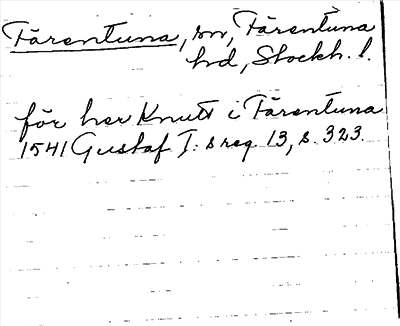 Färentuna, sn, Färentuna
hd, Stockh. l.
för her Knutt i Färentuna
1541 Gustaf I:s reg. 13, s. 323.